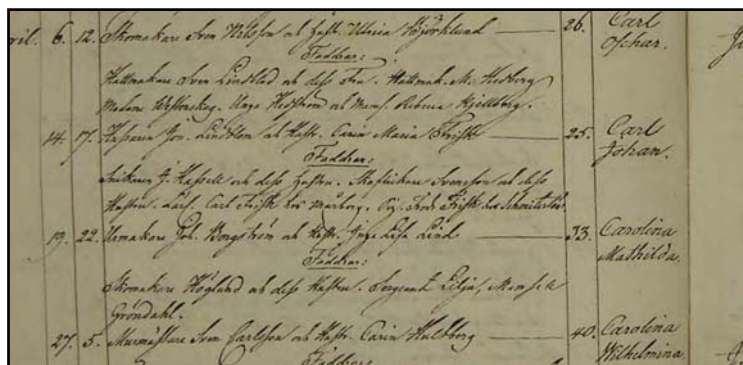 ril. 6. 12. Skomakare Sven Nilsson och Hust. Ulrica Björklund — 26. Carl
Oschar.
Faddrar:
Hattmakare Sven Lindblad och dess Fru. Hattmak. M. Hedberg
Unge Hedström och Mams. Rebecca Kjellberg.
14. 17. Husaren Joh. Lindblom och Hustr. Carin Maria Frisk — 25. Carl
Johan.
Faddrar:
J. Hassell och dess Hustru. Svensson och dess
Hustru. Carl Frisk hos
19. 22. Urmakare Joh. Borgström och Hustr. Inga Lisa Lind — 33. Carolina
Mathilda.
Faddrar:
Skomakare Höglund och dess Hustru. Sergeant Lilja, Mamsell
Gröndahl.
27. 5. Murmästare Sven Carlsson och Hustr. Carin Hultberg — 40. Carolina
Wilhelmina.
Faddrar: